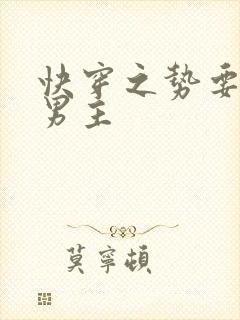 快穿之势要
男主
莫寧頓